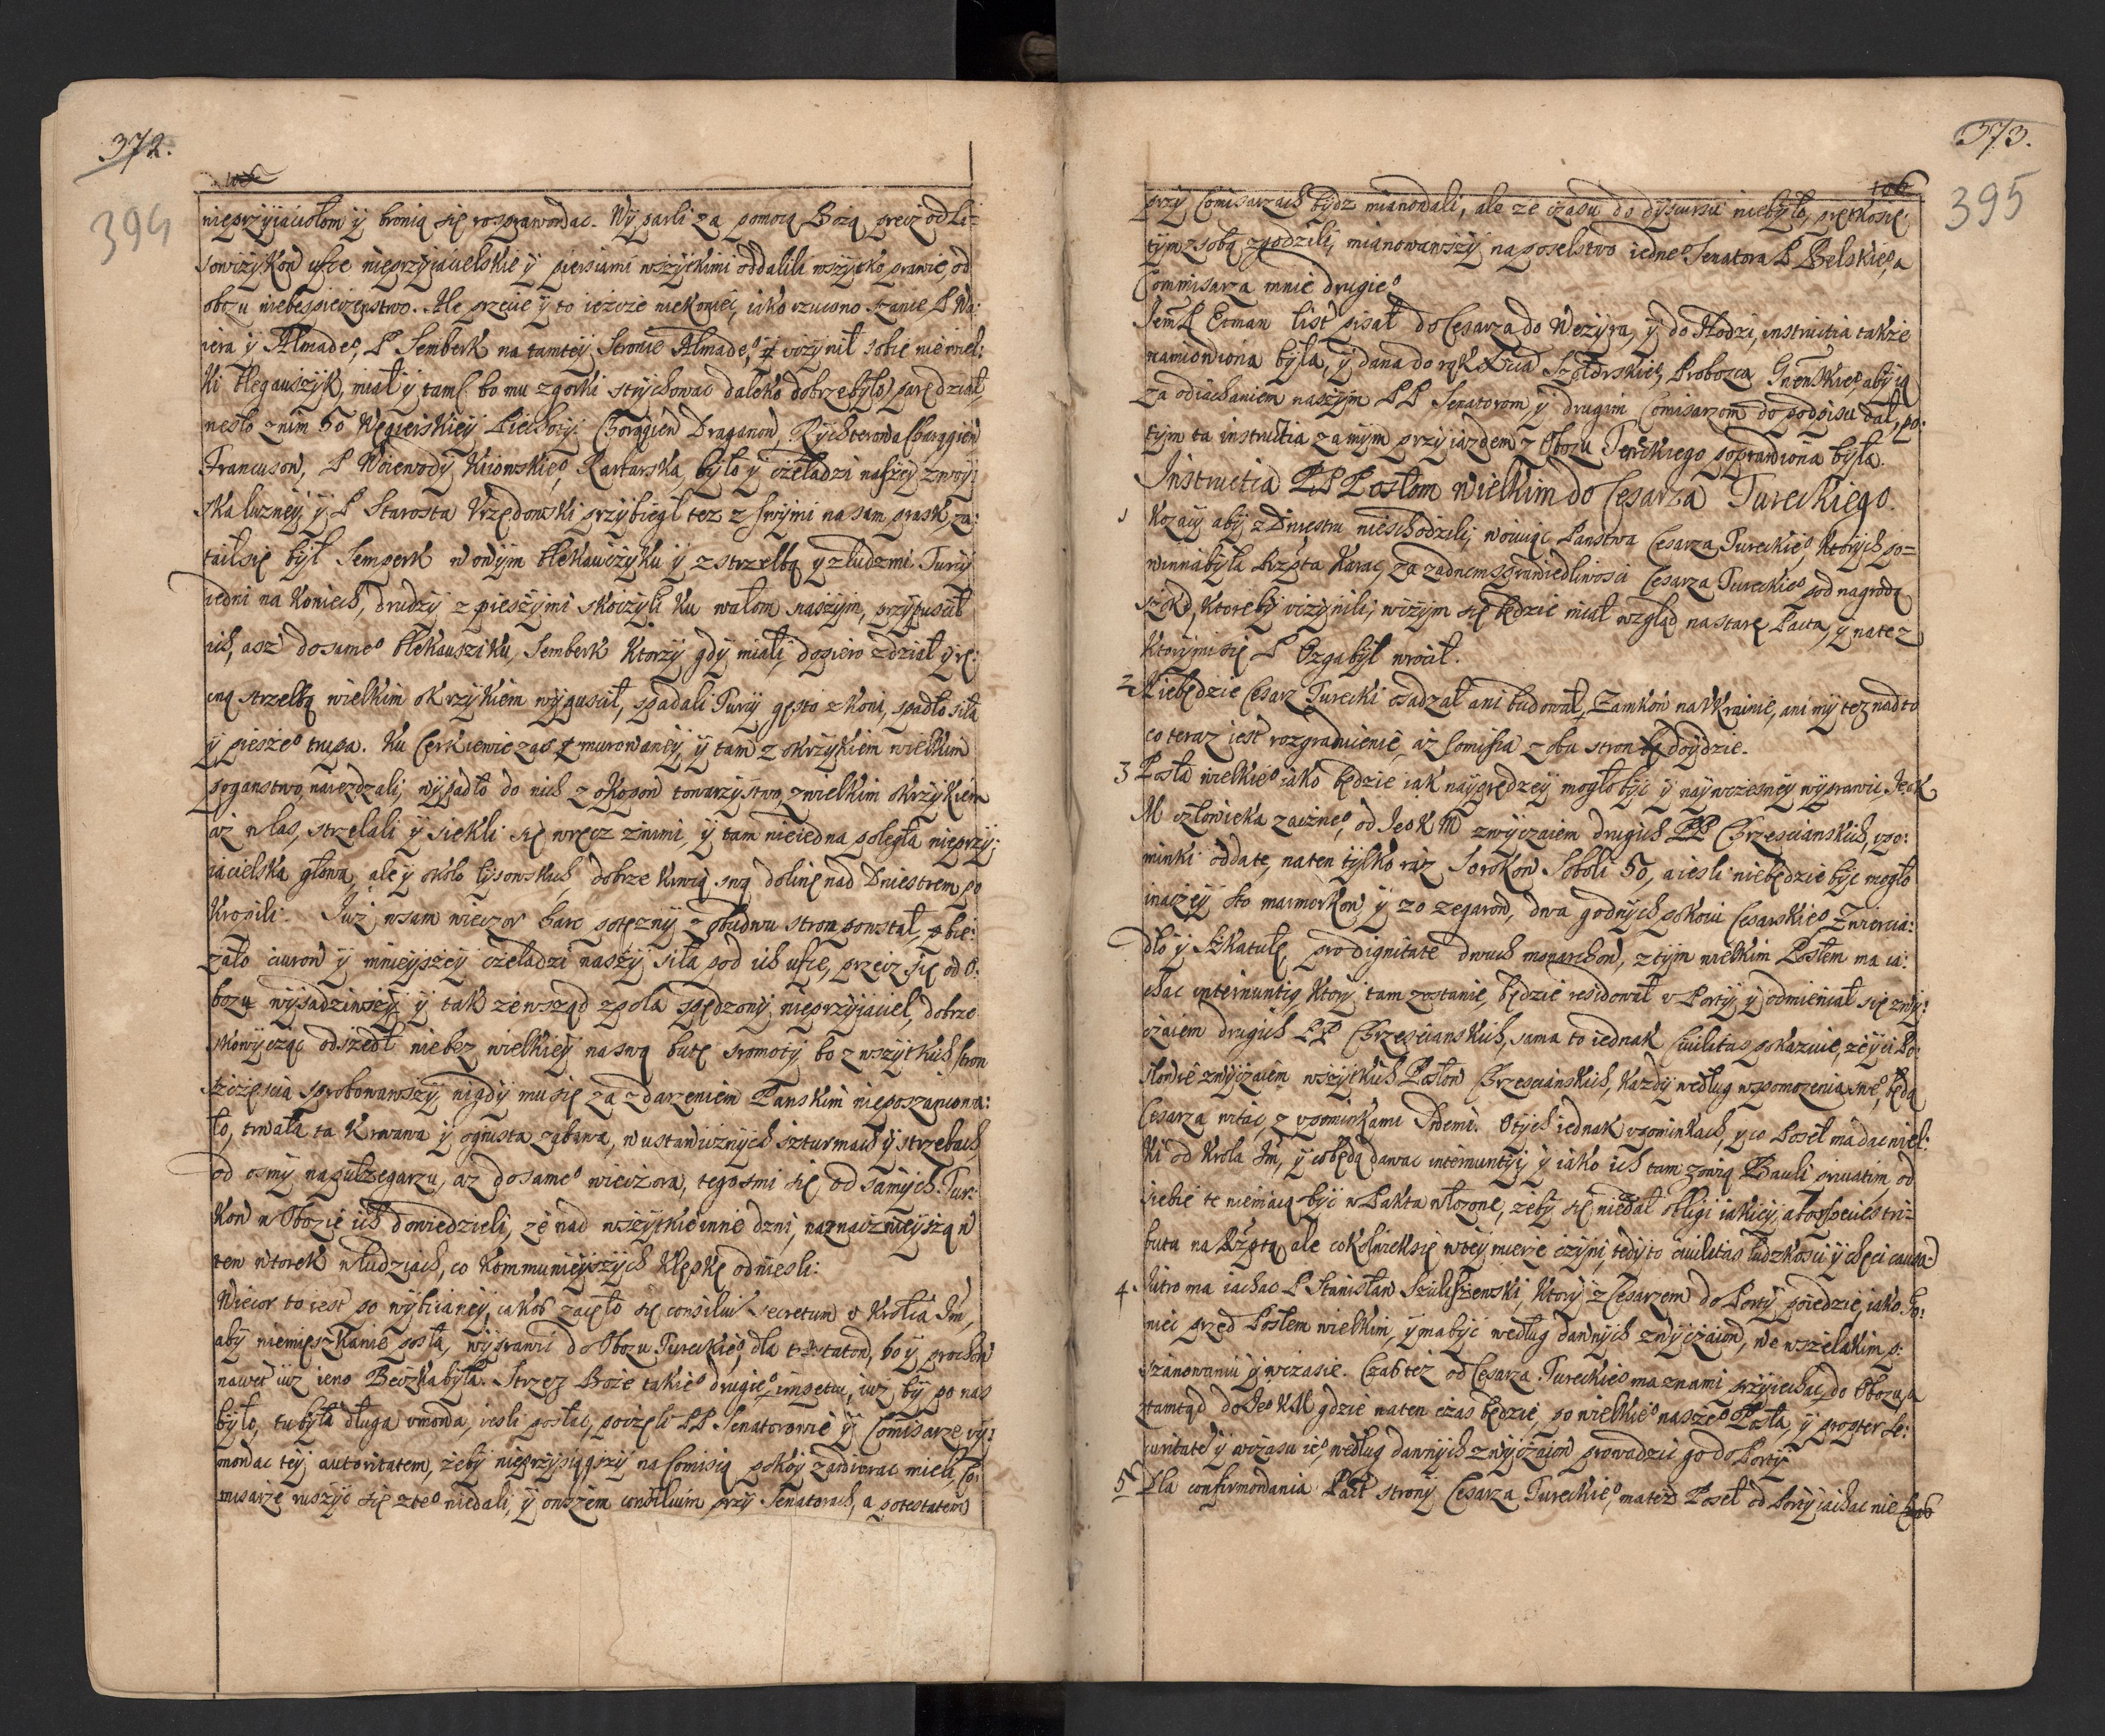 372.
394
nieprzÿiaciołom ÿ bronią się rosprawowac. Wÿparli za pomocą Bożą precz od Li-
sowczÿkow ufce nieprzÿiacielskie ÿ piersiami wszÿtkimi oddalili wszÿtko prawie, od
obozu niebespieczenstwo. Ale przecie ÿ to ieszcze niekoniec, iako rzucono szance P We:
iera ÿ Almadeº, P Semberk na tamteÿ stronie Almadeº, uczÿnił sobie niewiel:
ki blegauszÿk, miał ÿ tam bo mu zgorki strÿchowac daleko dobrze bÿło, parę dział,
nesło znim 50 Węgierskieÿ Piechotÿ Chorągiew Draganow, Rÿchterowa Charągiew
Francusow, P Woiewodÿ Kiiowskieº, Rarbarska, bÿło ÿ czeladzi naszeÿ zwoÿ:
ska luzneÿ, ÿ P Starosta Vrzędowski przÿbiegł tez z swÿmi na sam prask, za:
taił się bÿł Semperk w owÿm blekawczÿku ÿ z strzelbą ÿ z ludzmi. Turcÿ
iedni na koniech, drudzÿ z pieszÿmi skoczÿli ku wałom naszÿm, przÿpuscił
ich, asz do sameº blekausziku, Semberk ktorzÿ gdÿ mieli, dopiero z dział ÿ rę:
czną strzelbę wielkim okrzÿkiem wÿpuscił, spadali Turcÿ gęsto z koni, spadło siła
ÿ pieszeº trupa. Ku Cerkiewie zas murowaneÿ, ÿ tam z okrzÿkiem wielkim
poganstwo, naiezdzali, wÿpadło do nich z okopow towarzÿstwo, z wielkim okrzÿkiem
aż w las, strzelali ÿ siekli się wręcz znimi, ÿ tam nieiedna poległa nieprzÿ:
iacielska głowa, ale ÿ około lÿsowskich, dobrze krwią swą dolinę nad Dniestrem po
kropili. Już w sam wieczor harc potęznÿ z obudwu stron powstał, bie:
żało ciurow ÿ mnieÿszeÿ czeladzi naszÿ siła pod ich ufce, przecz się od o:
bozu wÿsadziwszÿ ÿ tak ze wsząd z pola spędzonÿ nieprzÿiaciel, dobrze
skowÿcząc odszedł nie bez wielkieÿ na swą butę sromotÿ bo z wszÿtkich stron
szczęscia sprobowawszÿ, nigdÿ mu się za zdarzeniem Panskim nieposzancowa:
ło, trwała ta krwawa ÿ ognista zabawa, w ustawicznÿch szturmach ÿ strzelbach
od osmÿ na pułzegarzu, az do sameº wieczora, tegosmi się od samÿch Tur:
kow w Obozie ich dowiedzieli, że nad wszÿtkie inne dzni, naznacznieÿszą w
ten wtorek w ludziach, co kommunieÿszÿch klęskę odniesli:
Wieczor to iest po wÿbicianeÿ, iakos zaczęto się consilium secretum v Krolica Jm,
abÿ niemięszkanie posła, wÿprawić do Obozu Tureckieº, dla tractatow, bo ÿ prochow
nawet iuż ieno Beczka bÿła. Strzeż Boże takieº drugieº impetu, iuż bÿ po nas
bÿło, tu bÿła długa vmowa, iesli posłac, poczęli PP Senatorowie ÿ Comisarze vÿ:
mowac teÿ autoritatem, żebÿ nieprzÿsiągszÿ na Comisią pokoÿ zawierac mieli, Co:
misarze ruszÿć się z teº niedali, ÿ owszem consilium przÿ Senatorach, a potestatem
373.
395
106
przÿ Comisarzach bÿdz mianowali, ale ze czasu do dÿscursu niebÿło, prętko się
tÿm z sobą zgodzili, mianowawszÿ na poselstwo iedneº Senatora P Belskieº, a
Commisarza mnie drugieº
JemP Etman list pisał do Cesarza do Wezÿra, ÿ do Hodzi, instructia także
namowiona bÿła, ÿ dana do rąk Xcia Szołdrskieº, Probozcza Gnenskieº, abÿ ią
za odiachaniem naszÿm PP Senatorom, ÿ drugim Comisarzom do podpisu dał, po:
tÿm ta instructia za mÿm przÿiazdem z Obozu Tureckiego poprawiona bÿła.
Instructia P.P Posłom wielkim do Cesarza Tureckiego.
1 Kozacÿ abÿ z Dniestru nieschodzili, woiuiąc Panstwa Cesarza Tureckieº, ktorÿch po=
winna bÿła Rzpta karac, za zadnem sprawiedliwosci Cesarza Tureckieº pod nagrodą
szkod, ktorebÿ uczÿnili, w czÿm się będzie miał wzgląd na stare Pacta, ÿ na te z
ktorÿmi się P Ozga bÿł wrocił.
2 Niebędzie Cesarz Turecki osadzał ani budował, Zamkow na Vkrainie, ani mÿ tez nad to
co teraz iest rozgraniczenie, aż Comissia z obu stron doÿdzie.
3 Posła wielkieº iako będzie iak naÿprędzeÿ mogło bÿć ÿ naÿwczesneÿ wÿprawić, Jeº K
M człowieka zacneº, od Jeº K M zwÿczaiem drugich PP Chrzescianskich, vpo:
minki oddate, na ten tÿlko raz Sorokow Soboli 50, a iesli niebędzie bÿc mogło
inaczeÿ sto marmorkow ÿ 20 zegarow, dwa godnÿch pokoiu Cesarskieº, Zwiercia:
dło ÿ Szkatułę, pro dignitate dwuch monarchow, z tÿm wielkim Posłem ma ia:
chac internuntiÿ, ktorÿ tam zostanie, będzie residował v Portÿ, ÿ odmieniał się zwÿ:
czaiem drugich PP Chrzescianskich, sama to iednak Ciuilitas pokazuie, żeÿ ci Po:
słowie zwÿczaiem wszÿtkich Posłow Chrzescianskich, kazdÿ według wspomozenia sweº, będą
Cesarza witac, z vpominkami Swemi. O tÿch iednak vpominkach, ÿ co Poseł ma dac wiel:
ki od Krola Jm, ÿ co będą dawac internuntÿ, ÿ iako ich tam zową Bauli priuatim, od
siebie te niemaią bÿć w Pakta włozone, żebÿ się niedał obligi iakieÿ, abo species tri=
butu na Rzptą, ale cokolwiek się w teÿ mierze czÿni, tedÿ to ciuilitas ludzkosci ÿ chęci causa
4. Jutro ma iachac P Stanisław Szuliszewski, ktorÿ z Cesarzem do Portÿ poiedzie, iako Go:
niec przed Posłem wielkim, ÿ ma bÿć według dawnÿch zwÿczaiow, we wszelakim p:
szanowaniu ÿ wczasie. Czaus tez od Cesarza Tureckieº ma z nami przÿiechac, do Obozu, a
ztamtąd do Jeº K M gdzie na ten czas będzie, po wielkieº naszeº Posła, ÿ propter se:
curitate ÿ wczasu ieº, według dawnÿch zwÿczaiow prowadzić go do Portÿ
5 Dla confirmowania Pact stronÿ Cesarza Tureckieº, ma tez Poseł od Portÿ iachac nie